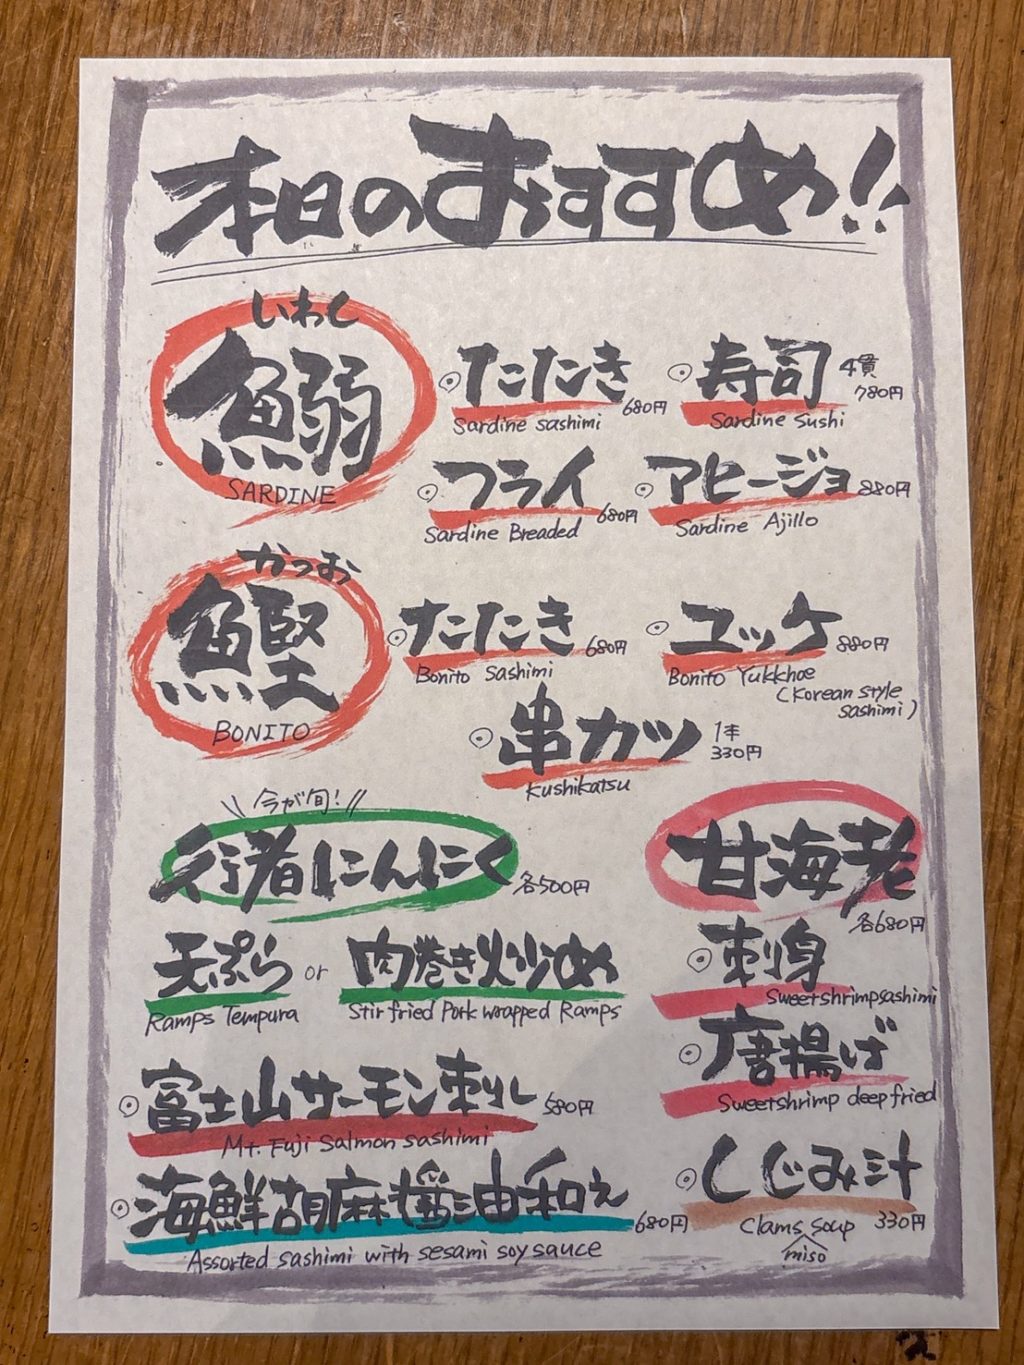 本日のおすすめ!!
いわし
鰯
SARDINE
たたき 680円
Sardine sashimi
寿司 4貫 780円
Sardine Sushi
フライ 680円
Sardine Breaded
アヒージョ 880円
Sardine Ajillo
かつお
鰹
BONITO
たたき 680円
Bonito Sashimi
ユッケ 880円
Bonito Yukkhoe
(Korean style
sashimi)
串カツ 1本 330円
Kushikatsu
今が旬!
行者にんにく 各500円
天ぷら or 肉巻き炒め
Ramps Tempura
Stir fried Pork wrapped Ramps
甘海老
各680円
刺身
Sweetshrimp sashimi
唐揚げ
Sweetshrimp deep fried
富士山サーモン刺し 580円
Mt. Fuji Salmon sashimi
海鮮胡麻醤油和え 680円
Assorted sashimi with sesami soy sauce
しじみ汁
Clams soup 330円
miso